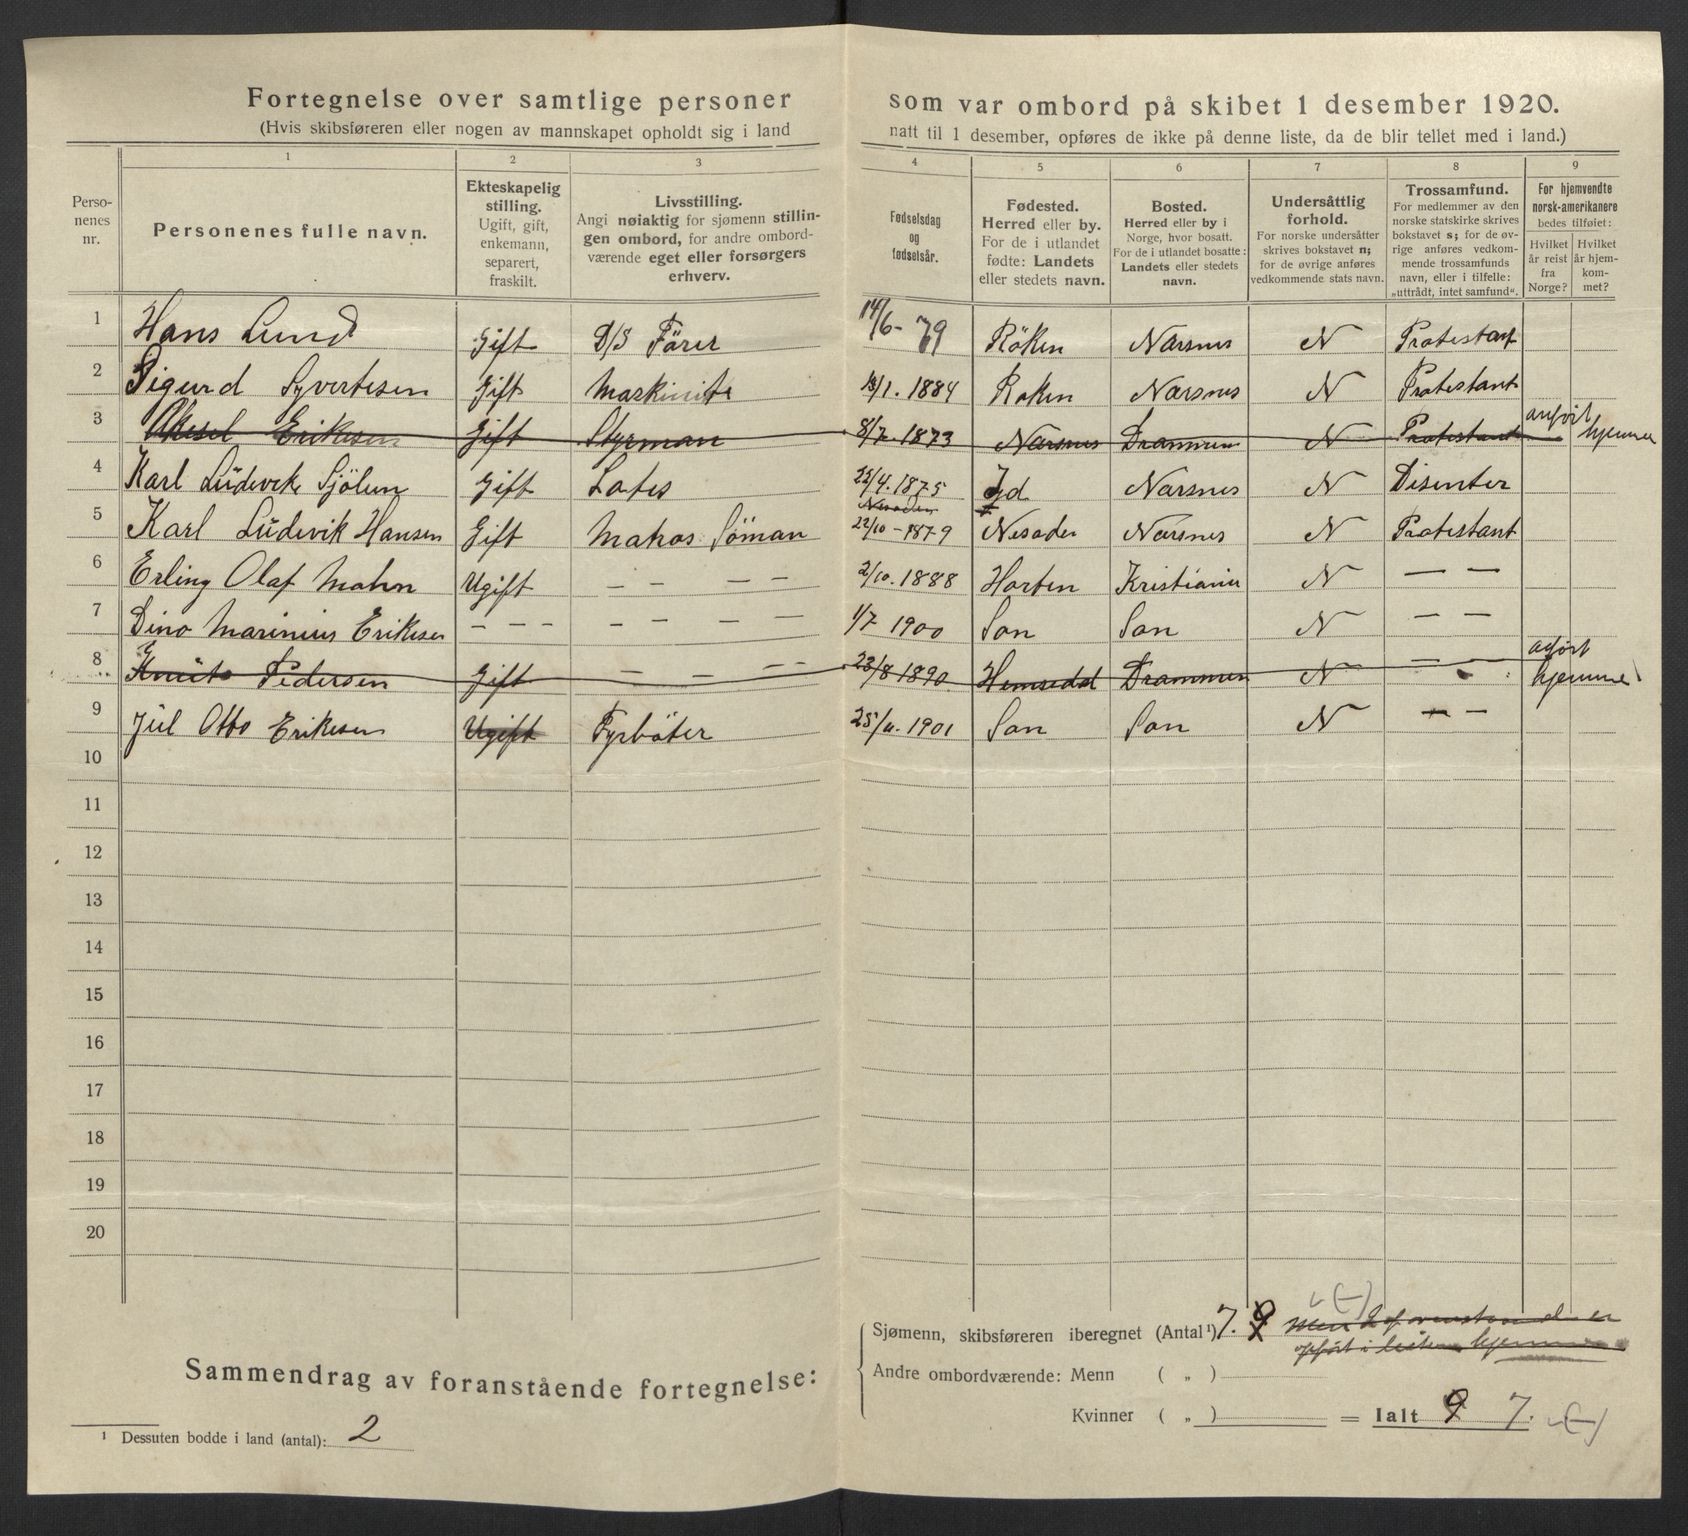 Fortegnelse over samtlige personer som var ombord på skibet 1 desember 1920.
(Hvis skibsføreren eller nogen av mannskapet opholdt sig i land natt til 1 desember, opføres de ikke på denne liste, da de blir tellet med i land.)
1 2 3 4 5 6 7 8 9
Personenes nr.
Personenes fulle navn.
Ekteskapelig
stilling.
Ugift, gift,
enkemann,
separert,
fraskilt.
Livsstilling.
Angi nøiaktig for sjømenn stillin-
gen ombord, for andre ombord-
værende eget eller forsørgers
erhverv.
Fødselsdag
og
fødselsår.
Fødested.
Herred eller by.
For de i utlandet
fødte: Landets
eller stedets navn.
Bosted.
Herred eller by i
Norge, hvor bosatt.
For de i utlandet bosatte:
Landets eller stedets
navn.
Undersåttlig
forhold.
For norske undersåtter
skrives bokstavet n;
for de øvrige anføres
vedkommende stats navn.
Trossamfund.
For medlemmer av den
norske statskirke skrives
bokstavet s; for de øv-
rige anføres vedkom-
mende trossamfunds
navn, eller i tilfelle:
„uttrådt, intet samfund“.
For hjemvendte
norsk-amerikanere
bedes tilføiet:
Hvilket
år reist
fra
Norge?
Hvilket
år hjem-
kom-
met?
1 Hans Lund Gift D/S Förer 14/6-79 Röken Narsnes N Protestant
2 Sigurd Syvertsen Gift Maskinist 13/1. 1884 Roken Narsnes N Protestant
3 Aksel Eriksen Gift Styrman 8/7. 1873 Narsnes Drammen N Protestant anført hjemme
4 Karl Ludevik Sjölun Gift Lots 22/4. 1875 Id Narsnes N Disenter
Nesodden
5 Karl Ludevik Hansen Gift Matros Söman 22/10-1879 Nesodden Narsnes N Protestant
6 Erling Olaf Mohn Ugift — — — — 2/10. 1888 Horten Kristiania N — —
7 Dino Marinius Eriksen — — — — — — — 1/7 1900 Son Son N — —
8 Knut Pedersen Gift — — — — 23/8 1890 Hemsedal Drammen N — — anført hjemme
9 Jul Otto Eriksen Ugift Fyrböter 25/11. 1901 Son Son N — —
10
11
12
13
14
15
16
17
18
19
20
Sammendrag av foranstående fortegnelse:
Sjømenn, skibsføreren iberegnet (Antal¹) 7. 9 men 2 af ovenstående er
opført i listen hjemme
Andre ombordværende: Menn ( „ )
Kvinner ( „ ) = Ialt 9 7.
¹ Dessuten bodde i land (antal): 2